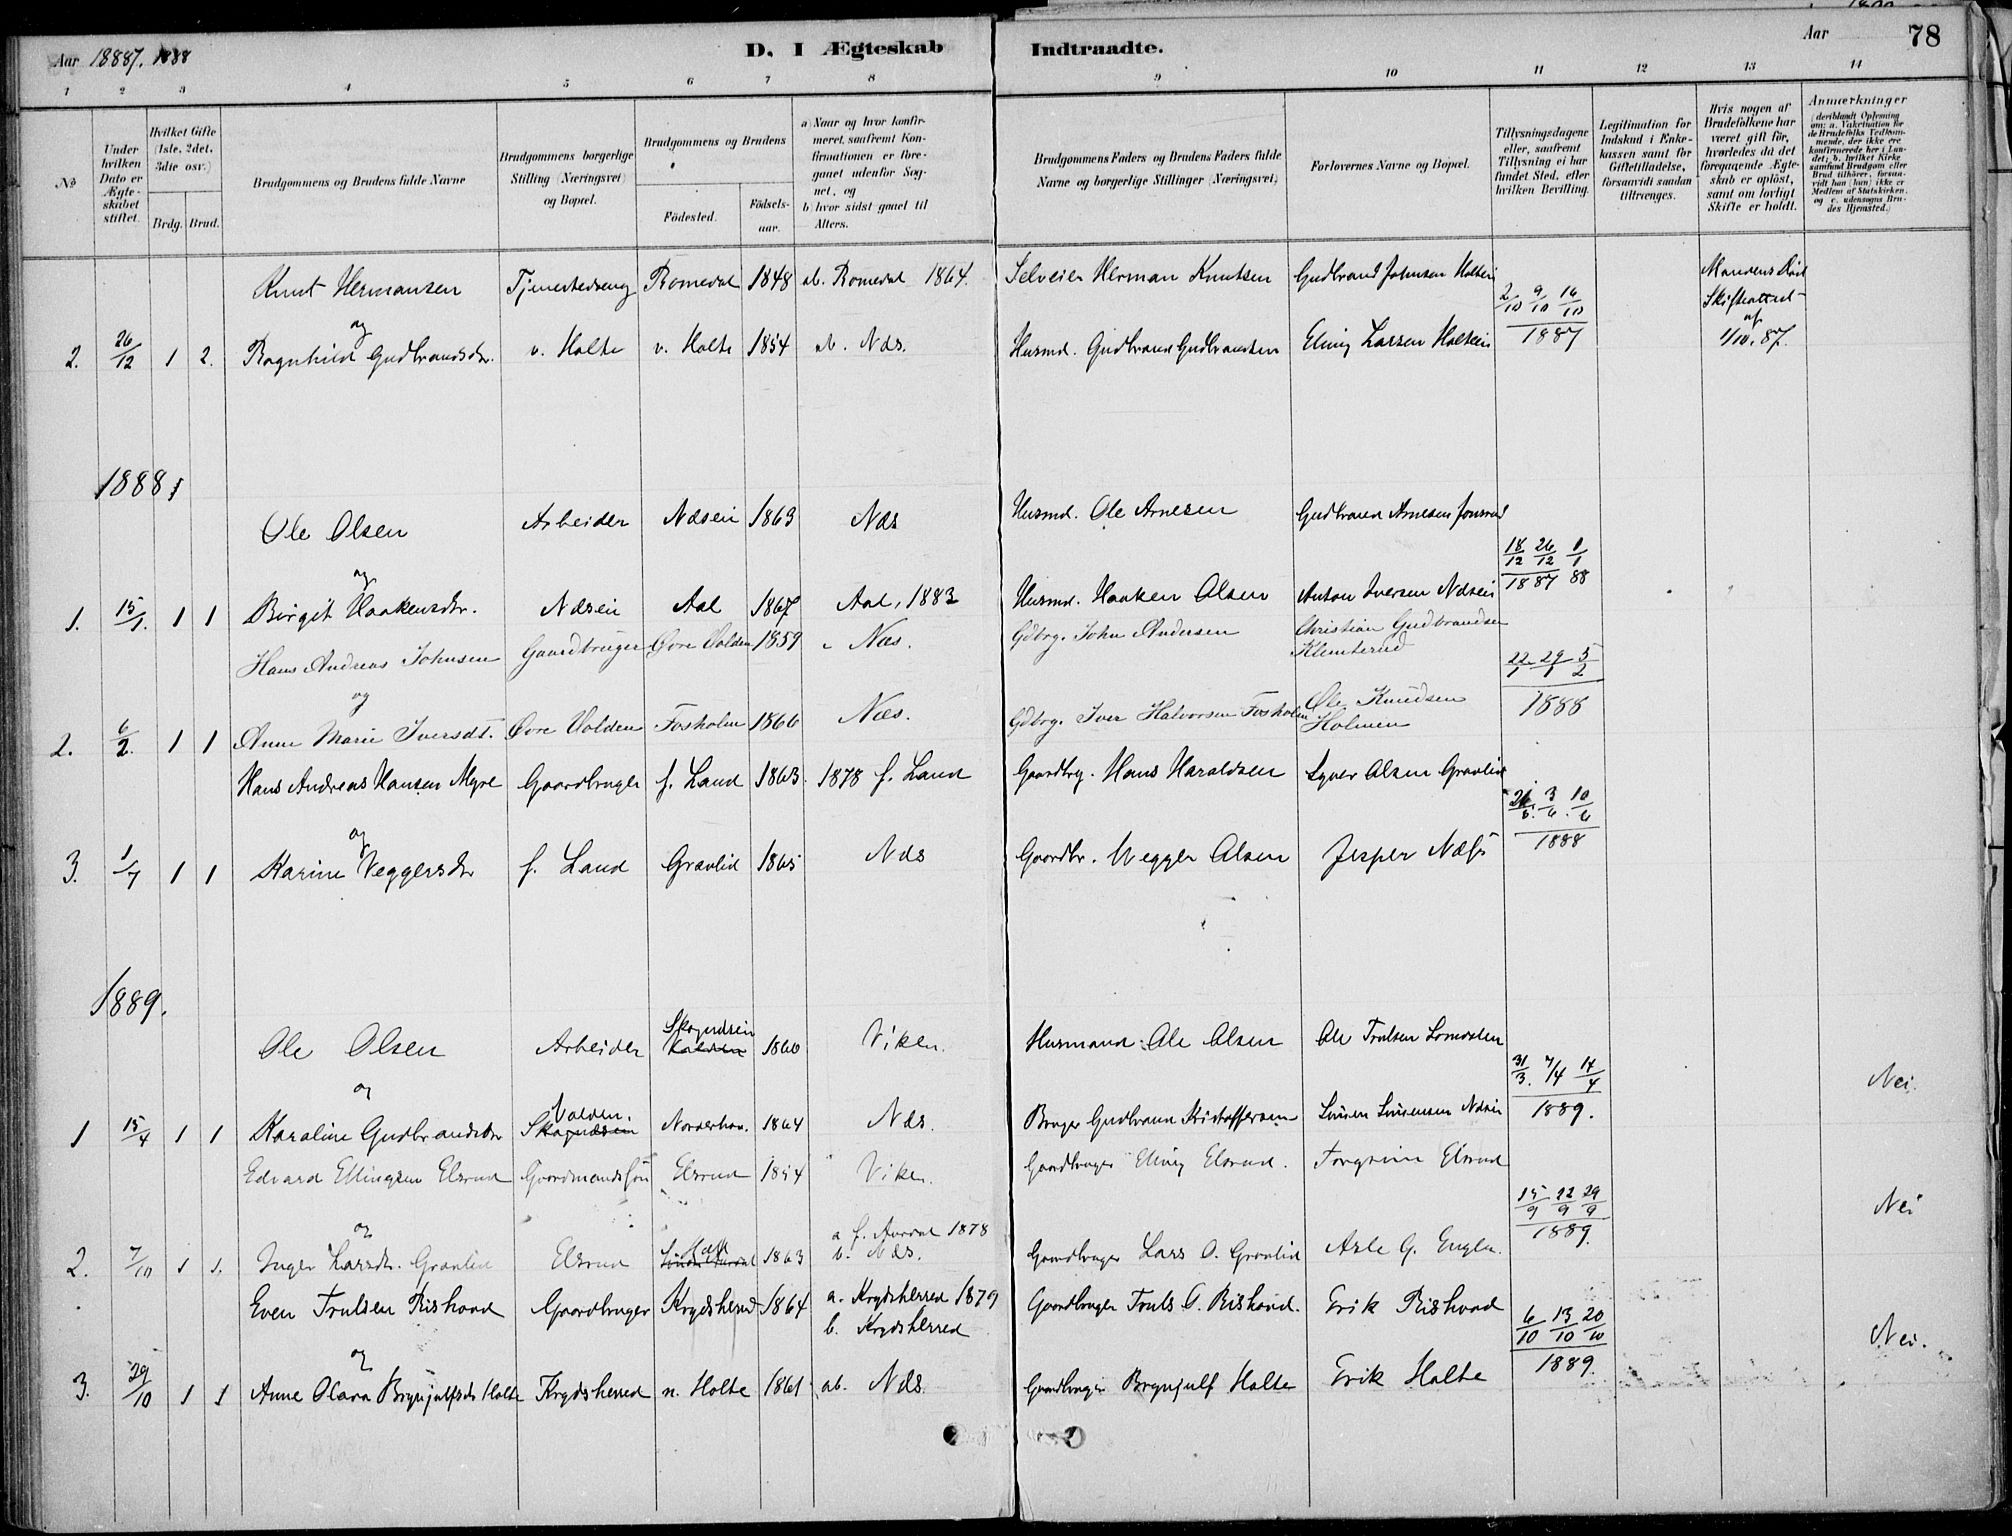 Aar 18887. 1888
D. I Ægteskab
Indtraadte.
Aar
78
1 2 3 4 5 6 7 8 9 10 11 12 13 14
No
Under hvilken Dato er Ægteskabet stiftet.
Hvilket Gifte (1ste, 2det, 3die osv.)
Brdg. Brud.
Brudgommens og Brudens fulde Navne
Brudgommens borgerlige Stilling (Næringsvei) og Bopæl.
Brudgommens og Brudens
Fødested.
Fødsels-aar.
a) Naar og hvor konfirmeret, saafremt Konfirmationen er foregaaet udenfor Sognet, og
b) hvor sidst gaaet til Alters.
Brudgommens Faders og Brudens Faders fulde Navne og borgerlige Stillinger (Næringsvei)
Forlovernes Navne og Bopæl.
Tillysningsdagene eller, saafremt Tillysning ei har fundet Sted, efter hvilken Bevilling.
Legitimation for Indskud i Enkekassen samt for Giftetilladelse, forsaavidt saadan tiltrænges.
Hvis nogen af Brudefolkene har været gift før, hvorledes da det foregaaende Ægteskab er opløst, samt om lovligt Skifte er holdt.
Anmærkninger
(deriblandt Oplysning om: a. Vakcination for de Brudefolks Vedkommende, der ikke ere konfirmerede her i Landet; b. hvilket Kirkesamfund Brudgom eller Brud tilhører, forsaavidt han (hun) ikke er Medlem af Statskirken, og c. udensogns Brudes Hjemsted.)
Knut Hermansen Romedal 1848 ab. Romedal 1864. Selveier Herman Knutsen Gudbrand Johnsen
2/10 9/10 16/10
og
2. 26/12 1 2. Ragnhild Gudbrandsdr. v. Holte v. Holte 1854 ab. Næs. Husmd. Gudbrand Gudbrandsen Elling Larsen 1887
1/10. 87.
1888
Ole Olsen Arbeider Næseie 1863 Næs Husmd. Ole Arnesen Gudbrand Arnesen
18/12 26/12 1/1
og
1887 88
1. 15/1. 1 1 Birgit Haakensdr. Næseie Aal 1867 Aal, 1883 Husmd. Haaken Olsen Anton Iversen Næseie
Hans Andreas Johnsen Gaardbruger Øvre Volden 1859 Næs. Gdbrg. John Andersen Christian Gudbrandsen Klemterud
22/1 29/1 5/2
og
2. 6/2. 1 1 Anne Marie Iversdt. Øvre Volden Fosholm 1866 Næs. Gdbrg. Iver Halvorsen Fosholm Ole Knudsen Holmen 1888
Hans Andreas Hansen Myre Gaardbruger f. Land 1863. 1878 f. Land Gaardbrg. Hans Haraldsen Olsen Gravlid
3/6. 10/6
og
3. 1/7 1 1 Karine Veggersdr f. Land Gravlid 1865 Næs Gaardbr. Vegger Olsen Jesper Næss 1888
1889.
Ole Olsen Arbeider Skognæseie 1860 Viken. Husmand Ole Olsen Ole Trulsen
31/3. 7/4 14/4
og
Nei.
1 15/4 1 1 Karoline Gudbrandsdr Volden. Norderhov. 1864 Næs. Bruger Gudbrand Kristoffersen 1889.
Edvard Ellingsen Elsrud Gaardmandssøn Elsrud 1854 Viken. Gaardbruger Elling Elsrud. Torgrim Elsrud
15/9 22/9 29/9
og
Nei
2. 7/10 1 1. Inger Larsdr. Gravlid Elsrud 1863 a f. Aurdal 1878 b. Næs. Gaardbruger Lars O. Gravlid Asle G. 1889.
Even Trulsen Rishovd Gaardbruger Krydsherred 1864 a. Krydsherred 1879 b. Krydsherred Gaardbruger Truls O. Rishovd. Erik Rishovd
6/10 13/10 20/10
og
Nei.
3. 29/10 1 1 Anne Olava Brynjulfsdr Holte Krydsherred n. Holte 1861 ab. Næs. Gaardbruger Brynjulf Holte Erik Holte 1889.